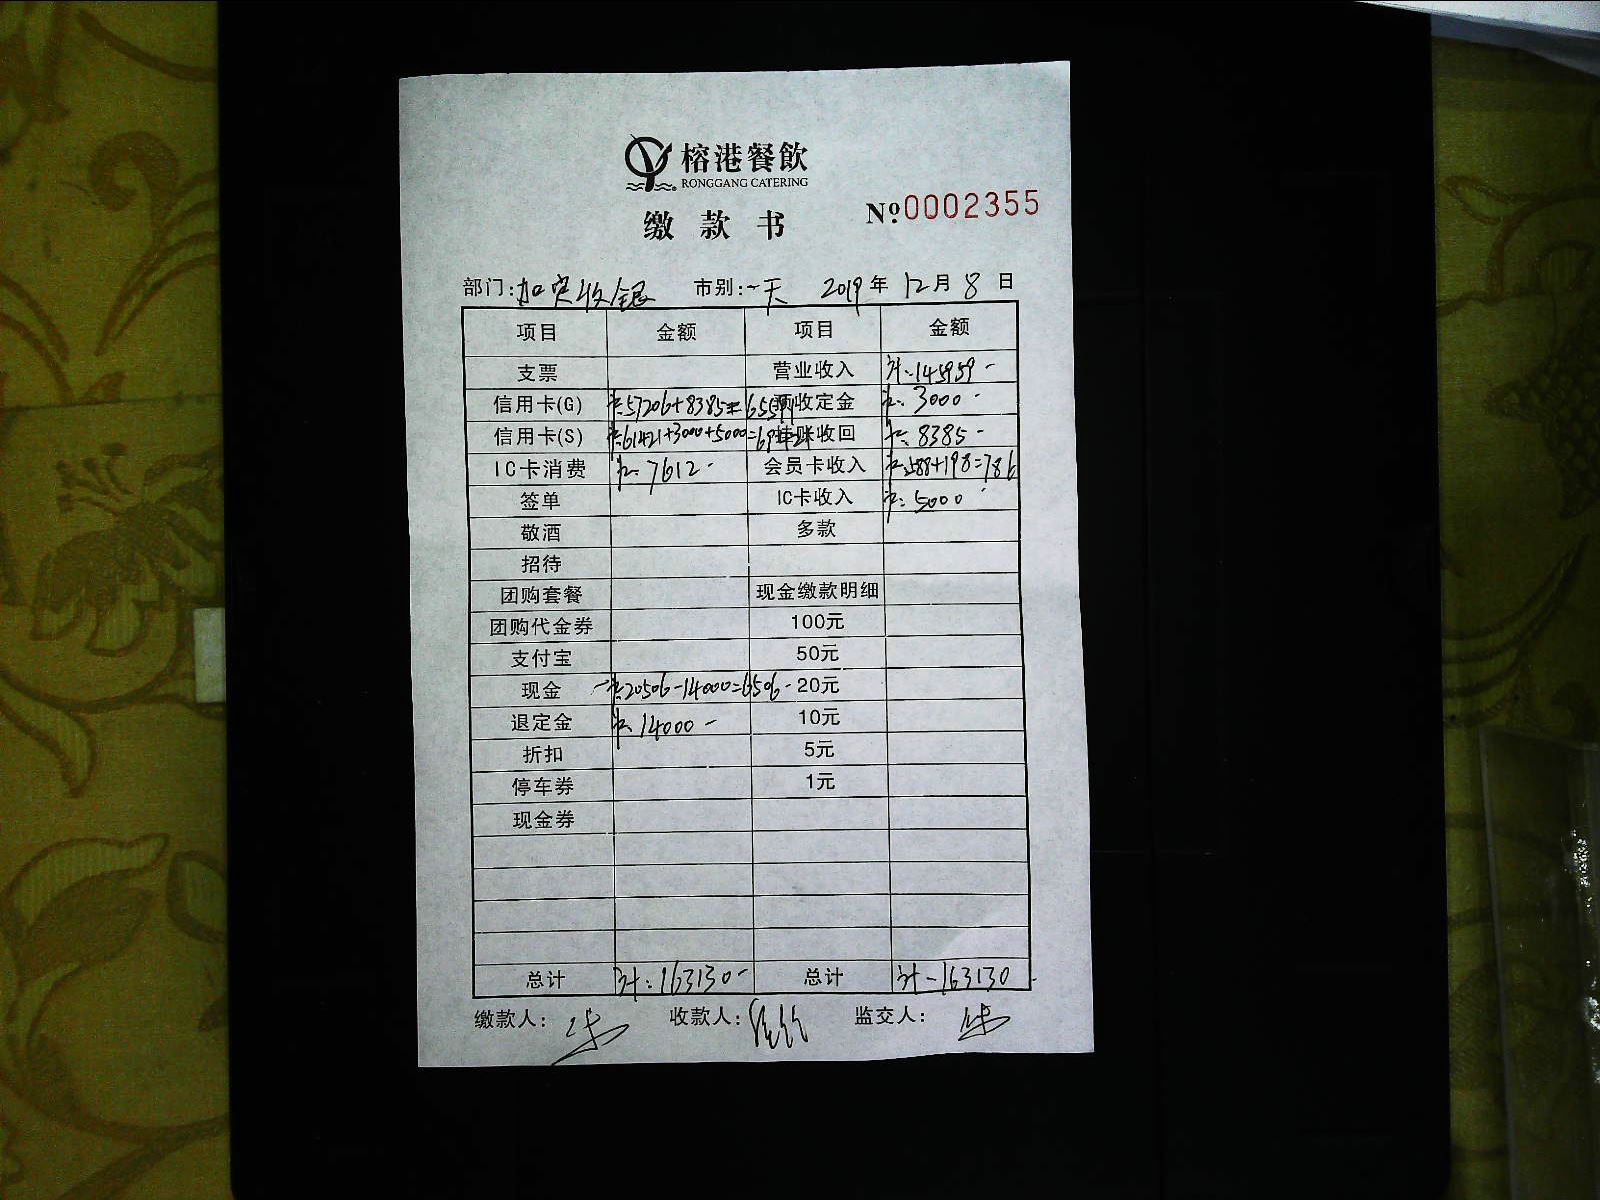 榕港餐飲
RONGGANG CATERING
缴款书 №0002355
部门: 加宾收银 市别: 一天 2019年12月8日
项目 金额 项目 金额
支票 营业收入 计:145959-
信用卡(G) 计:57206+8385=65591 预收定金 计:3000-
信用卡(S) 计:61421+3000+5000=69421 挂账收回 计:8385-
IC卡消费 计:7612- 会员卡收入 计:588+198=786
签单 IC卡收入 计:5000-
敬酒 多款
招待
团购套餐 现金缴款明细
团购代金券 100元
支付宝 50元
现金 计:20506-14000=6506- 20元
退定金 计:14000- 10元
折扣 5元
停车券 1元
现金券
总计 计:163130- 总计 计-163130-
缴款人: 收款人: 监交人: